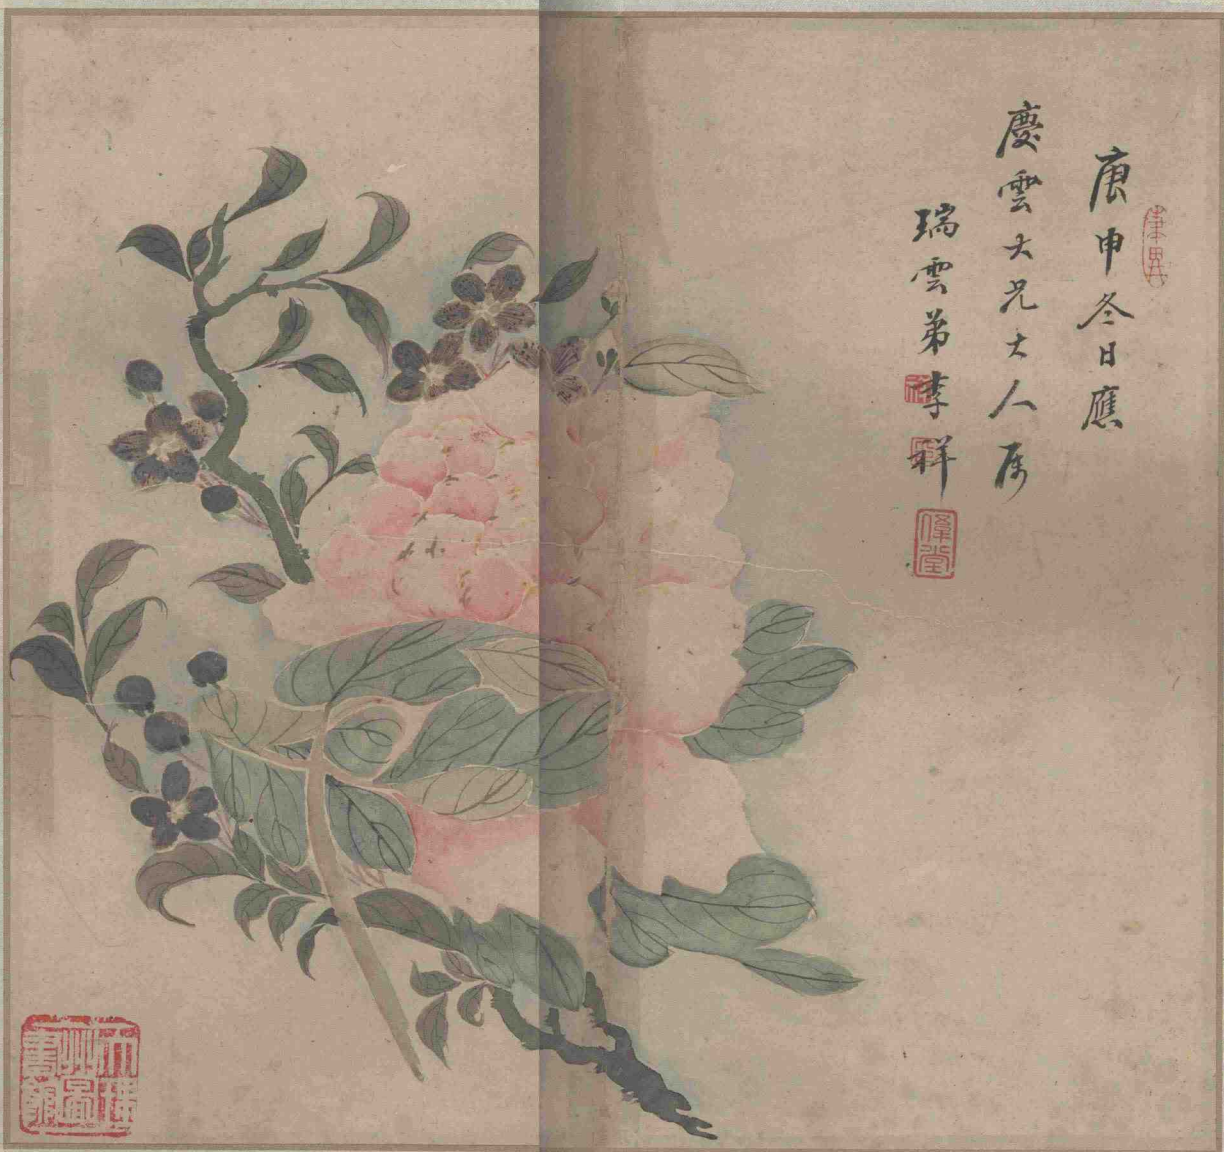 庚申冬日應
慶雲大兄大人屬
瑞雲弟李祥